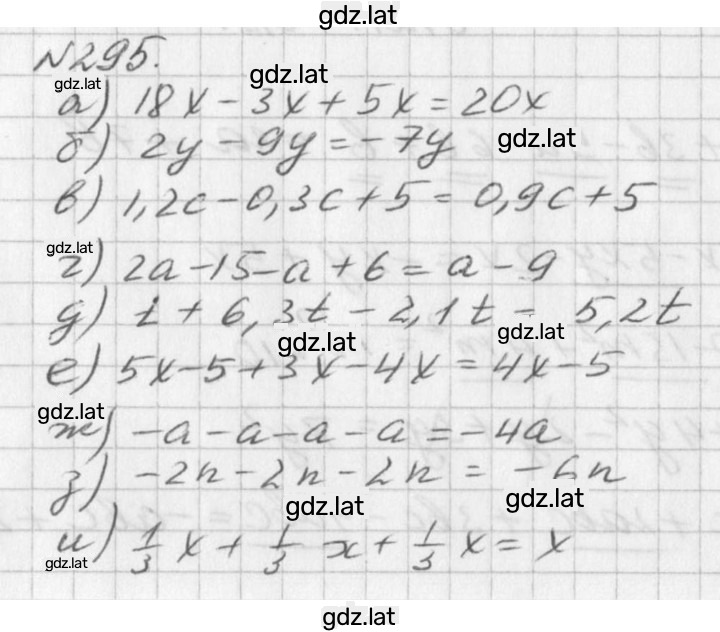 gdz.lat
№295.
gdz.lat
gdz.lat
а) 18x - 3x + 5x = 20x
б) 2y - 9y = -7y
gdz.lat
в) 1,2c - 0,3c + 5 = 0,9c + 5
gdz.lat
г) 2a - 15 - a + 6 = a - 9
д) t + 6,3t - 2,1t = 5,2t
gdz.lat
gdz.lat
е) 5x - 5 + 3x - 4x = 4x - 5
gdz.lat
ж) -a - a - a - a = -4a
з) -2n - 2n - 2n = -6n
gdz.lat
gdz.lat
и) 1/3 x + 1/3 x + 1/3 x = x
gdz.lat
gdz.lat